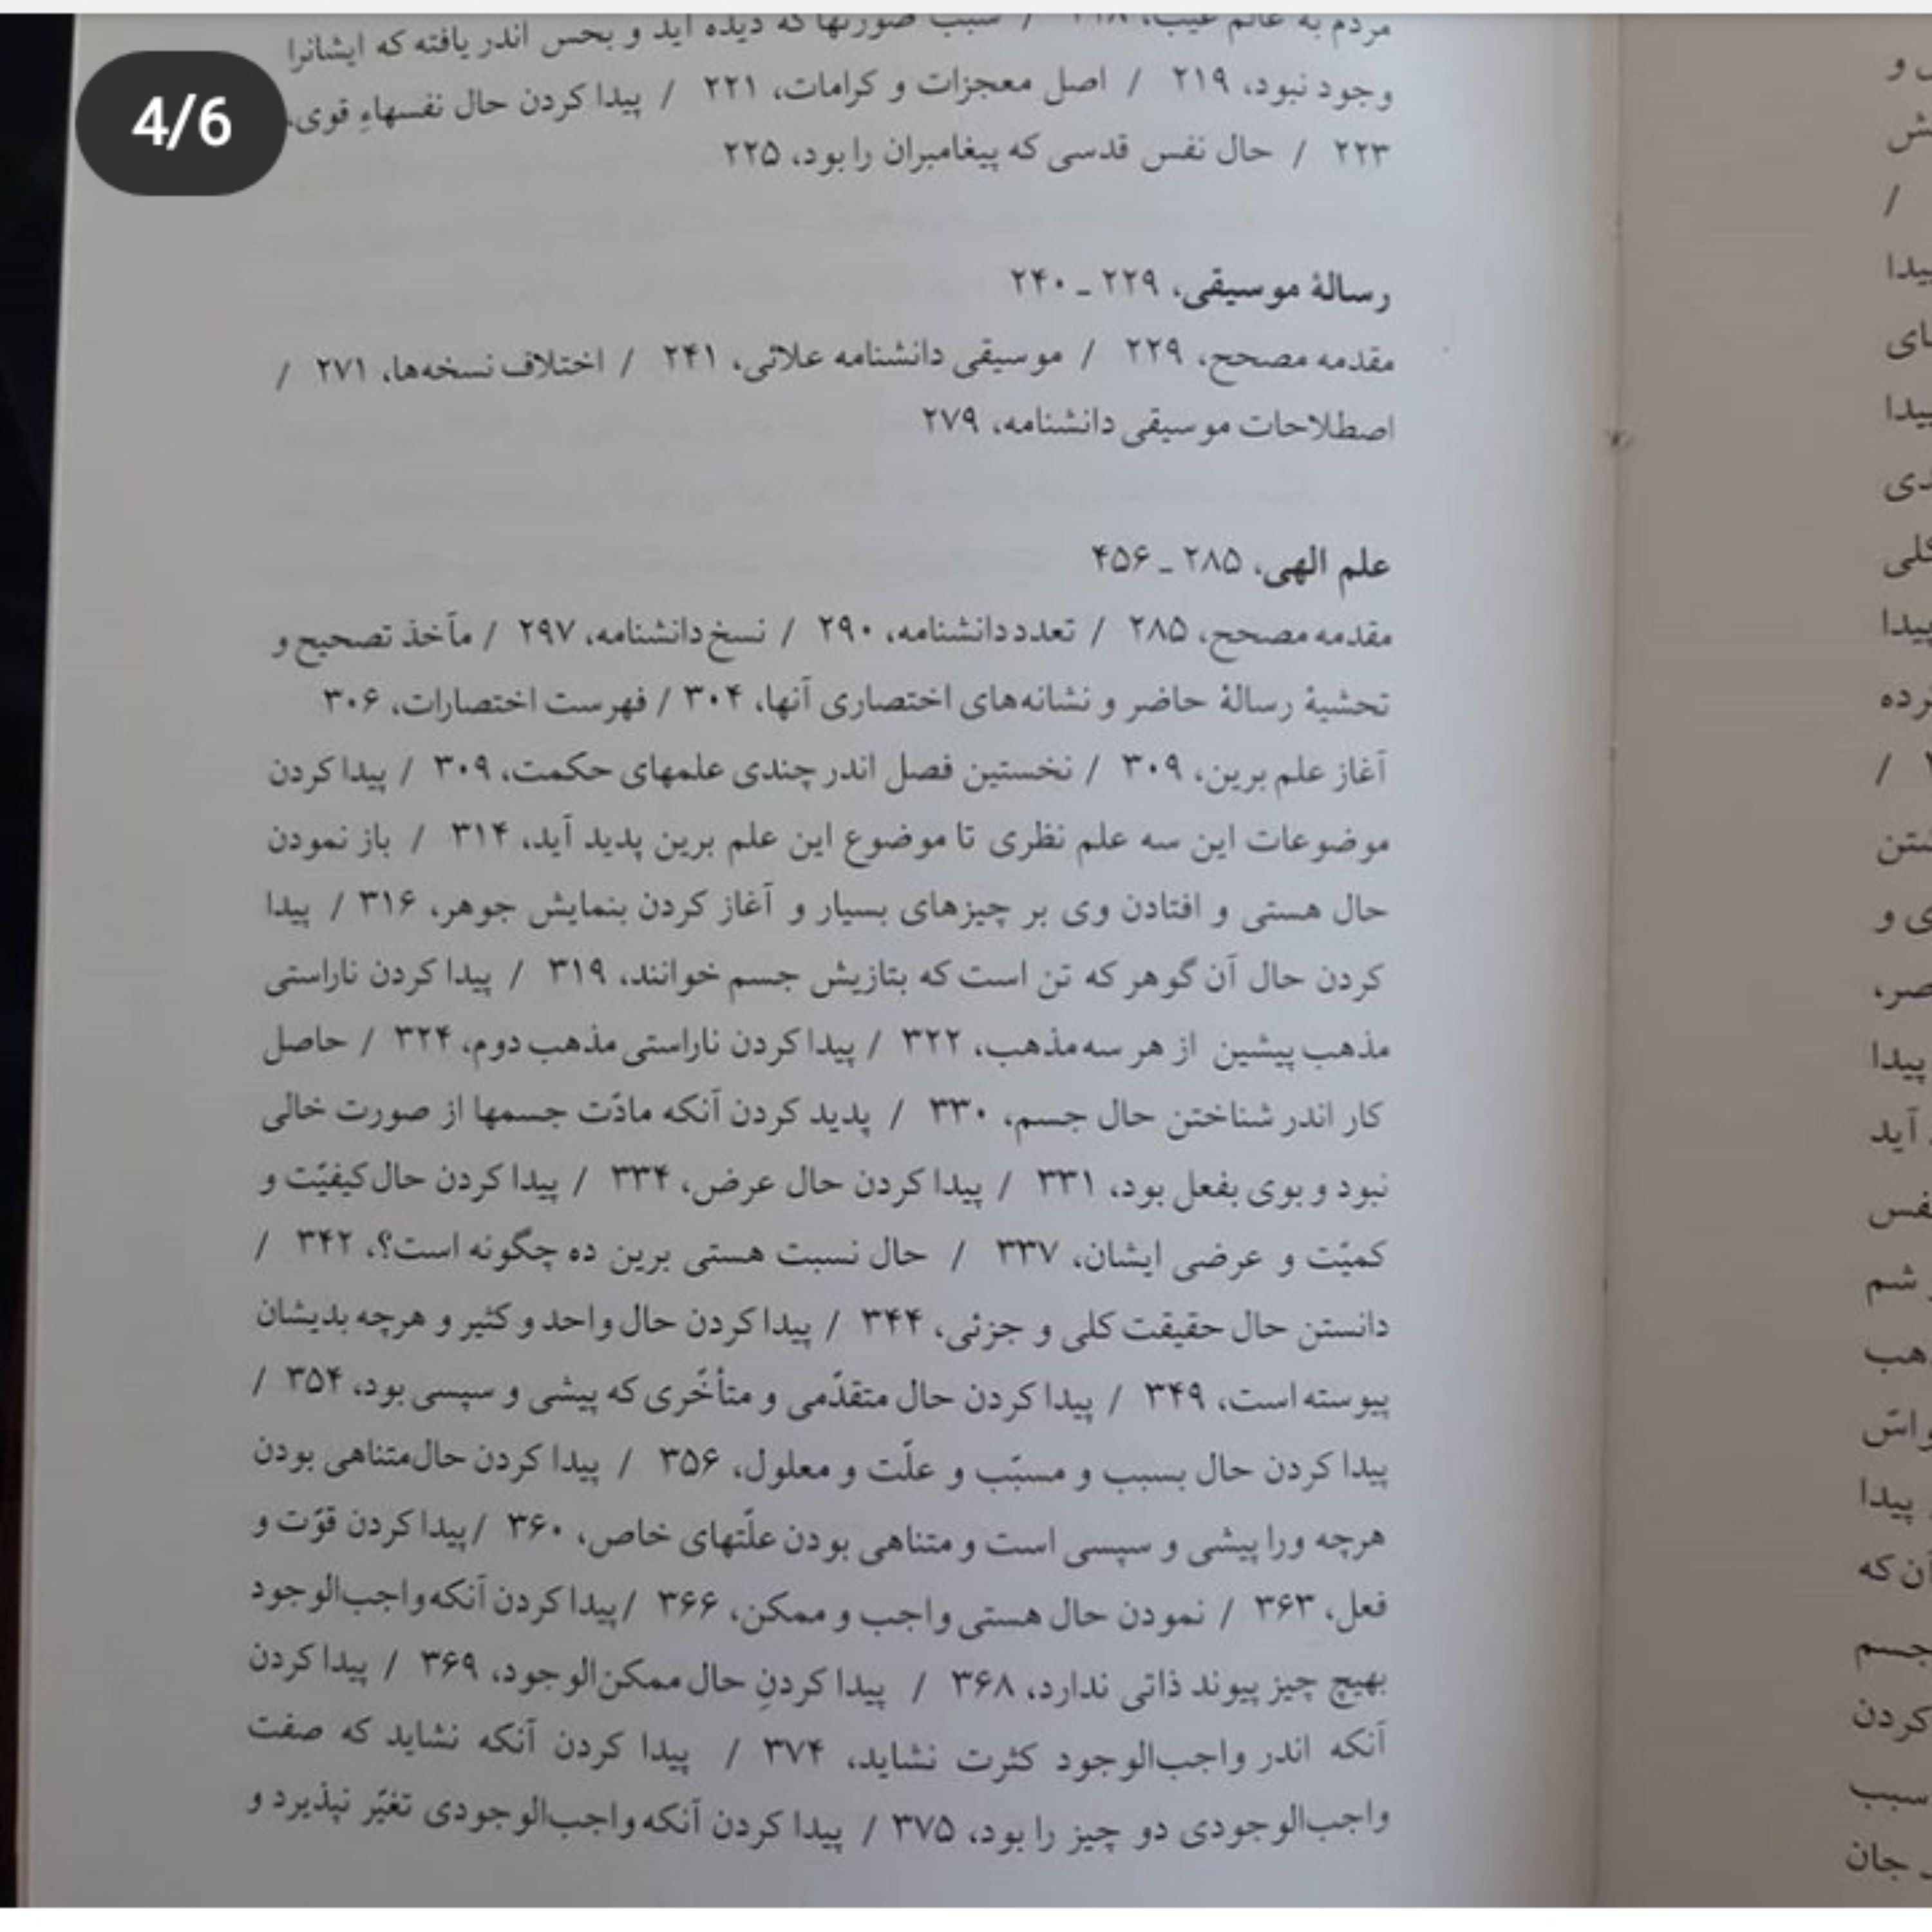 4/6
مردم به عالم غیب، ۲۱۸ / سبب صورتها که دیده آید و بحس اندر یافته که ایشانرا
وجود نبود، ۲۱۹ / اصل معجزات و کرامات، ۲۲۱ / پیدا کردن حال نفسهاءِ قوی،
۲۲۳ / حال نفس قدسی که پیغامبران را بود، ۲۲۵
رسالهٔ موسیقی، ۲۲۹ ـ ۲۴۰
مقدمه مصحح، ۲۲۹ / موسیقی دانشنامه علائی، ۲۴۱ / اختلاف نسخه‌ها، ۲۷۱ /
اصطلاحات موسیقی دانشنامه، ۲۷۹
علم الهی، ۲۸۵ ـ ۴۵۶
مقدمه مصحح، ۲۸۵ / تعدد دانشنامه، ۲۹۰ / نسخ دانشنامه، ۲۹۷ / مآخذ تصحیح و
تحشیهٔ رسالهٔ حاضر و نشانه‌های اختصاری آنها، ۳۰۴ / فهرست اختصارات، ۳۰۶
آغاز علم برین، ۳۰۹ / نخستین فصل اندر چندی علمهای حکمت، ۳۰۹ / پیدا کردن
موضوعات این سه علم نظری تا موضوع این علم برین پدید آید، ۳۱۴ / باز نمودن
حال هستی و افتادن وی بر چیزهای بسیار و آغاز کردن بنمایش جوهر، ۳۱۶ / پیدا
کردن حال آن گوهر که تن است که بتازیش جسم خوانند، ۳۱۹ / پیدا کردن ناراستی
مذهب پیشین از هر سه مذهب، ۳۲۲ / پیدا کردن ناراستی مذهب دوم، ۳۲۴ / حاصل
کار اندر شناختن حال جسم، ۳۳۰ / پدید کردن آنکه مادّت جسمها از صورت خالی
نبود و بوی بفعل بود، ۳۳۱ / پیدا کردن حال عرض، ۳۳۴ / پیدا کردن حال کیفیّت و
کمیّت و عرضی ایشان، ۳۳۷ / حال نسبت هستی برین ده چگونه است؟، ۳۴۲ /
دانستن حال حقیقت کلی و جزئی، ۳۴۴ / پیدا کردن حال واحد و کثیر و هرچه بدیشان
پیوسته است، ۳۴۹ / پیدا کردن حال متقدّمی و متأخّری که پیشی و سپسی بود، ۳۵۴ /
پیدا کردن حال بسبب و مسبّب و علّت و معلول، ۳۵۶ / پیدا کردن حال متناهی بودن
هرچه ورا پیشی و سپسی است و متناهی بودن علّتهای خاص، ۳۶۰ / پیدا کردن قوّت و
فعل، ۳۶۳ / نمودن حال هستی واجب و ممکن، ۳۶۶ / پیدا کردن آنکه واجب‌الوجود
بهیچ چیز پیوند ذاتی ندارد، ۳۶۸ / پیدا کردنِ حال ممکن‌الوجود، ۳۶۹ / پیدا کردن
آنکه اندر واجب‌الوجود کثرت نشاید، ۳۷۴ / پیدا کردن آنکه نشاید که صفت
واجب‌الوجودی دو چیز را بود، ۳۷۵ / پیدا کردن آنکه واجب‌الوجودی تغیّر نپذیرد و